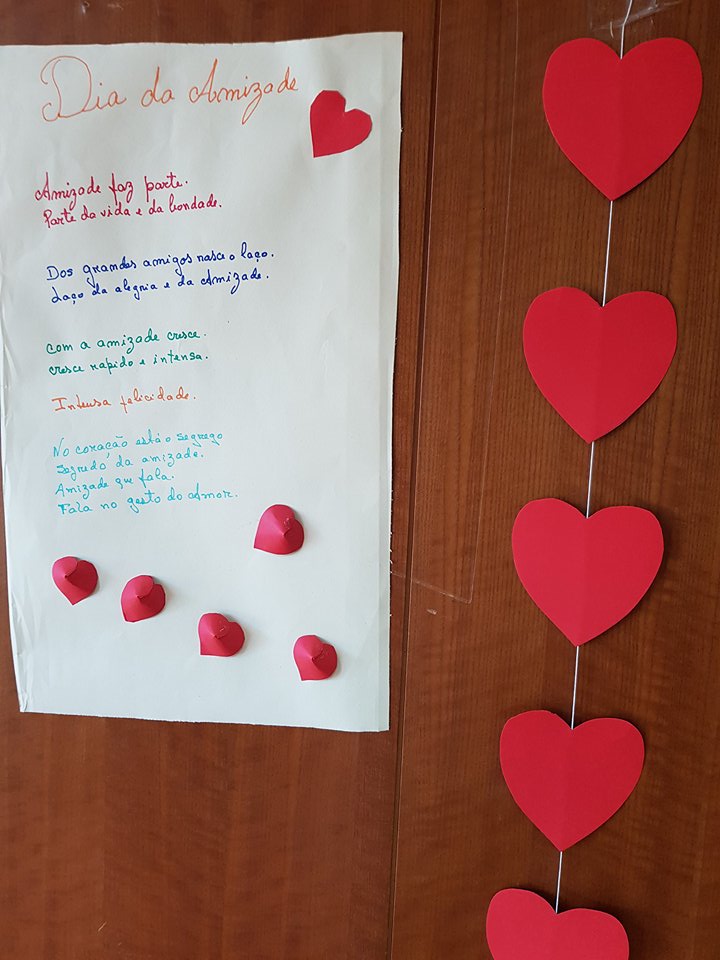 Dia da Amizade
Amizade faz parte.
Parte da vida e da bondade.
Dos grandes amigos nasce o laço.
Laço da alegria e da Amizade.
com a amizade cresce.
cresce rapido e intensa.
Intensa felicidade.
No coração está o segrego
Segredo da amizade.
Amizade que fala.
Fala no gesto do Amor.